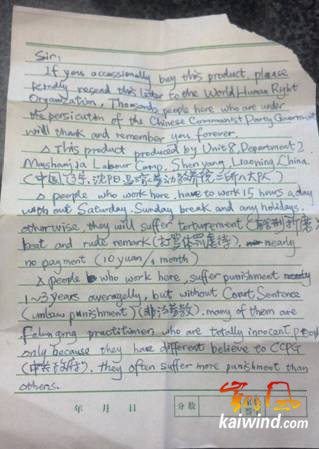 Sir:
If you occassionally buy this product, please
kindly resend this letter to the World Human Right
Organization. Thousands people here who are under
the persicution of the Chinese Communist Party Government
will thank and remember you forever.
This product produced by Unit 8, Department 2
Mashanjia Labour Camp, Shenyang, Liaoning, China.
(中国,辽宁,沈阳,马三家劳动教养院二所八大队)
people who work here, have to work 15 hours a day
with out Saturday, Sunday break and any holidays.
otherwise, they will suffer torturement
beat and rude remark (打骂体罚虐待), nearly
no payment (10 yuan / 1 month)
people who work here, suffer punishment
1~3 years averagelly, but without Court Sentence
(unlaw punishment) (非法劳教). many of them are
Falungong practitioner, who are totally innocent people
only because they have different believe to CCPG
(中共政府), they often suffer more punishment than
others.
年 月 日
分数
kaiwind.com